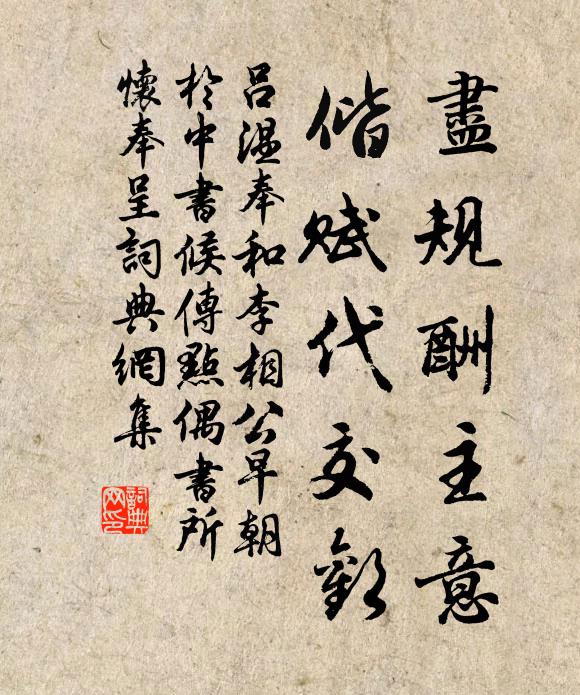 盡規酬主意
偕賦代交歡
呂溫奉和李相公早朝
於中書候傳點偶書所
懷奉呈詞典網集
詞典网印